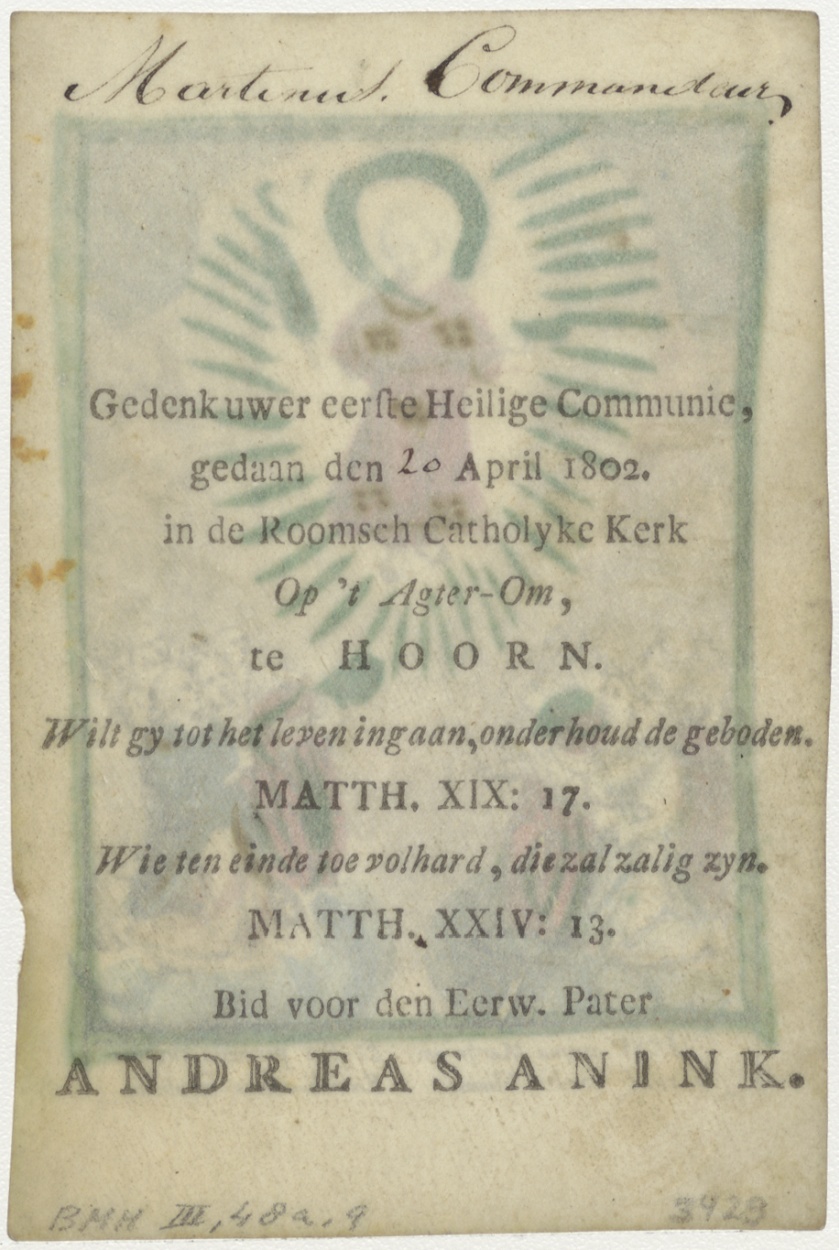 Martinus. Commandeur,
Gedenk uwer eerſte Heilige Communie,
gedaan den 20 April 1802.
in de Roomsch Catholyke Kerk
Op 't Agter-Om,
te HOORN.
Wilt gy tot het leven ingaan, onderhoud de geboden.
MATTH. XIX: 17.
Wie ten einde toe volhard, die zal zalig zyn.
MATTH. XXIV: 13.
Bid voor den Eerw. Pater
ANDREAS ANINK.
BMH III, 48a, 9
3928